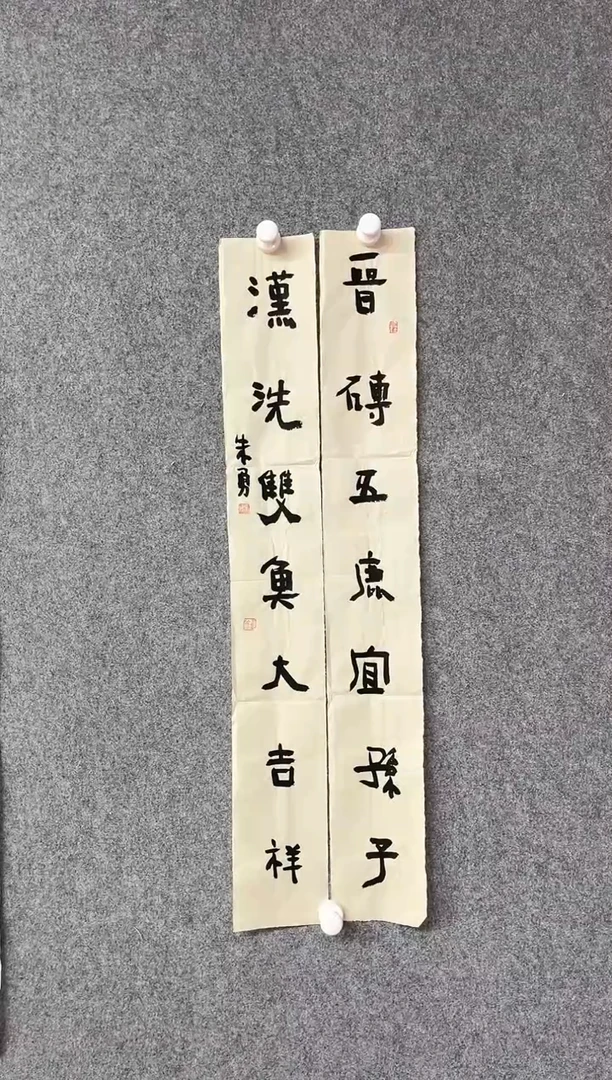 晉磚五鹿宜孫子
漢洗雙魚大吉祥
朱勇